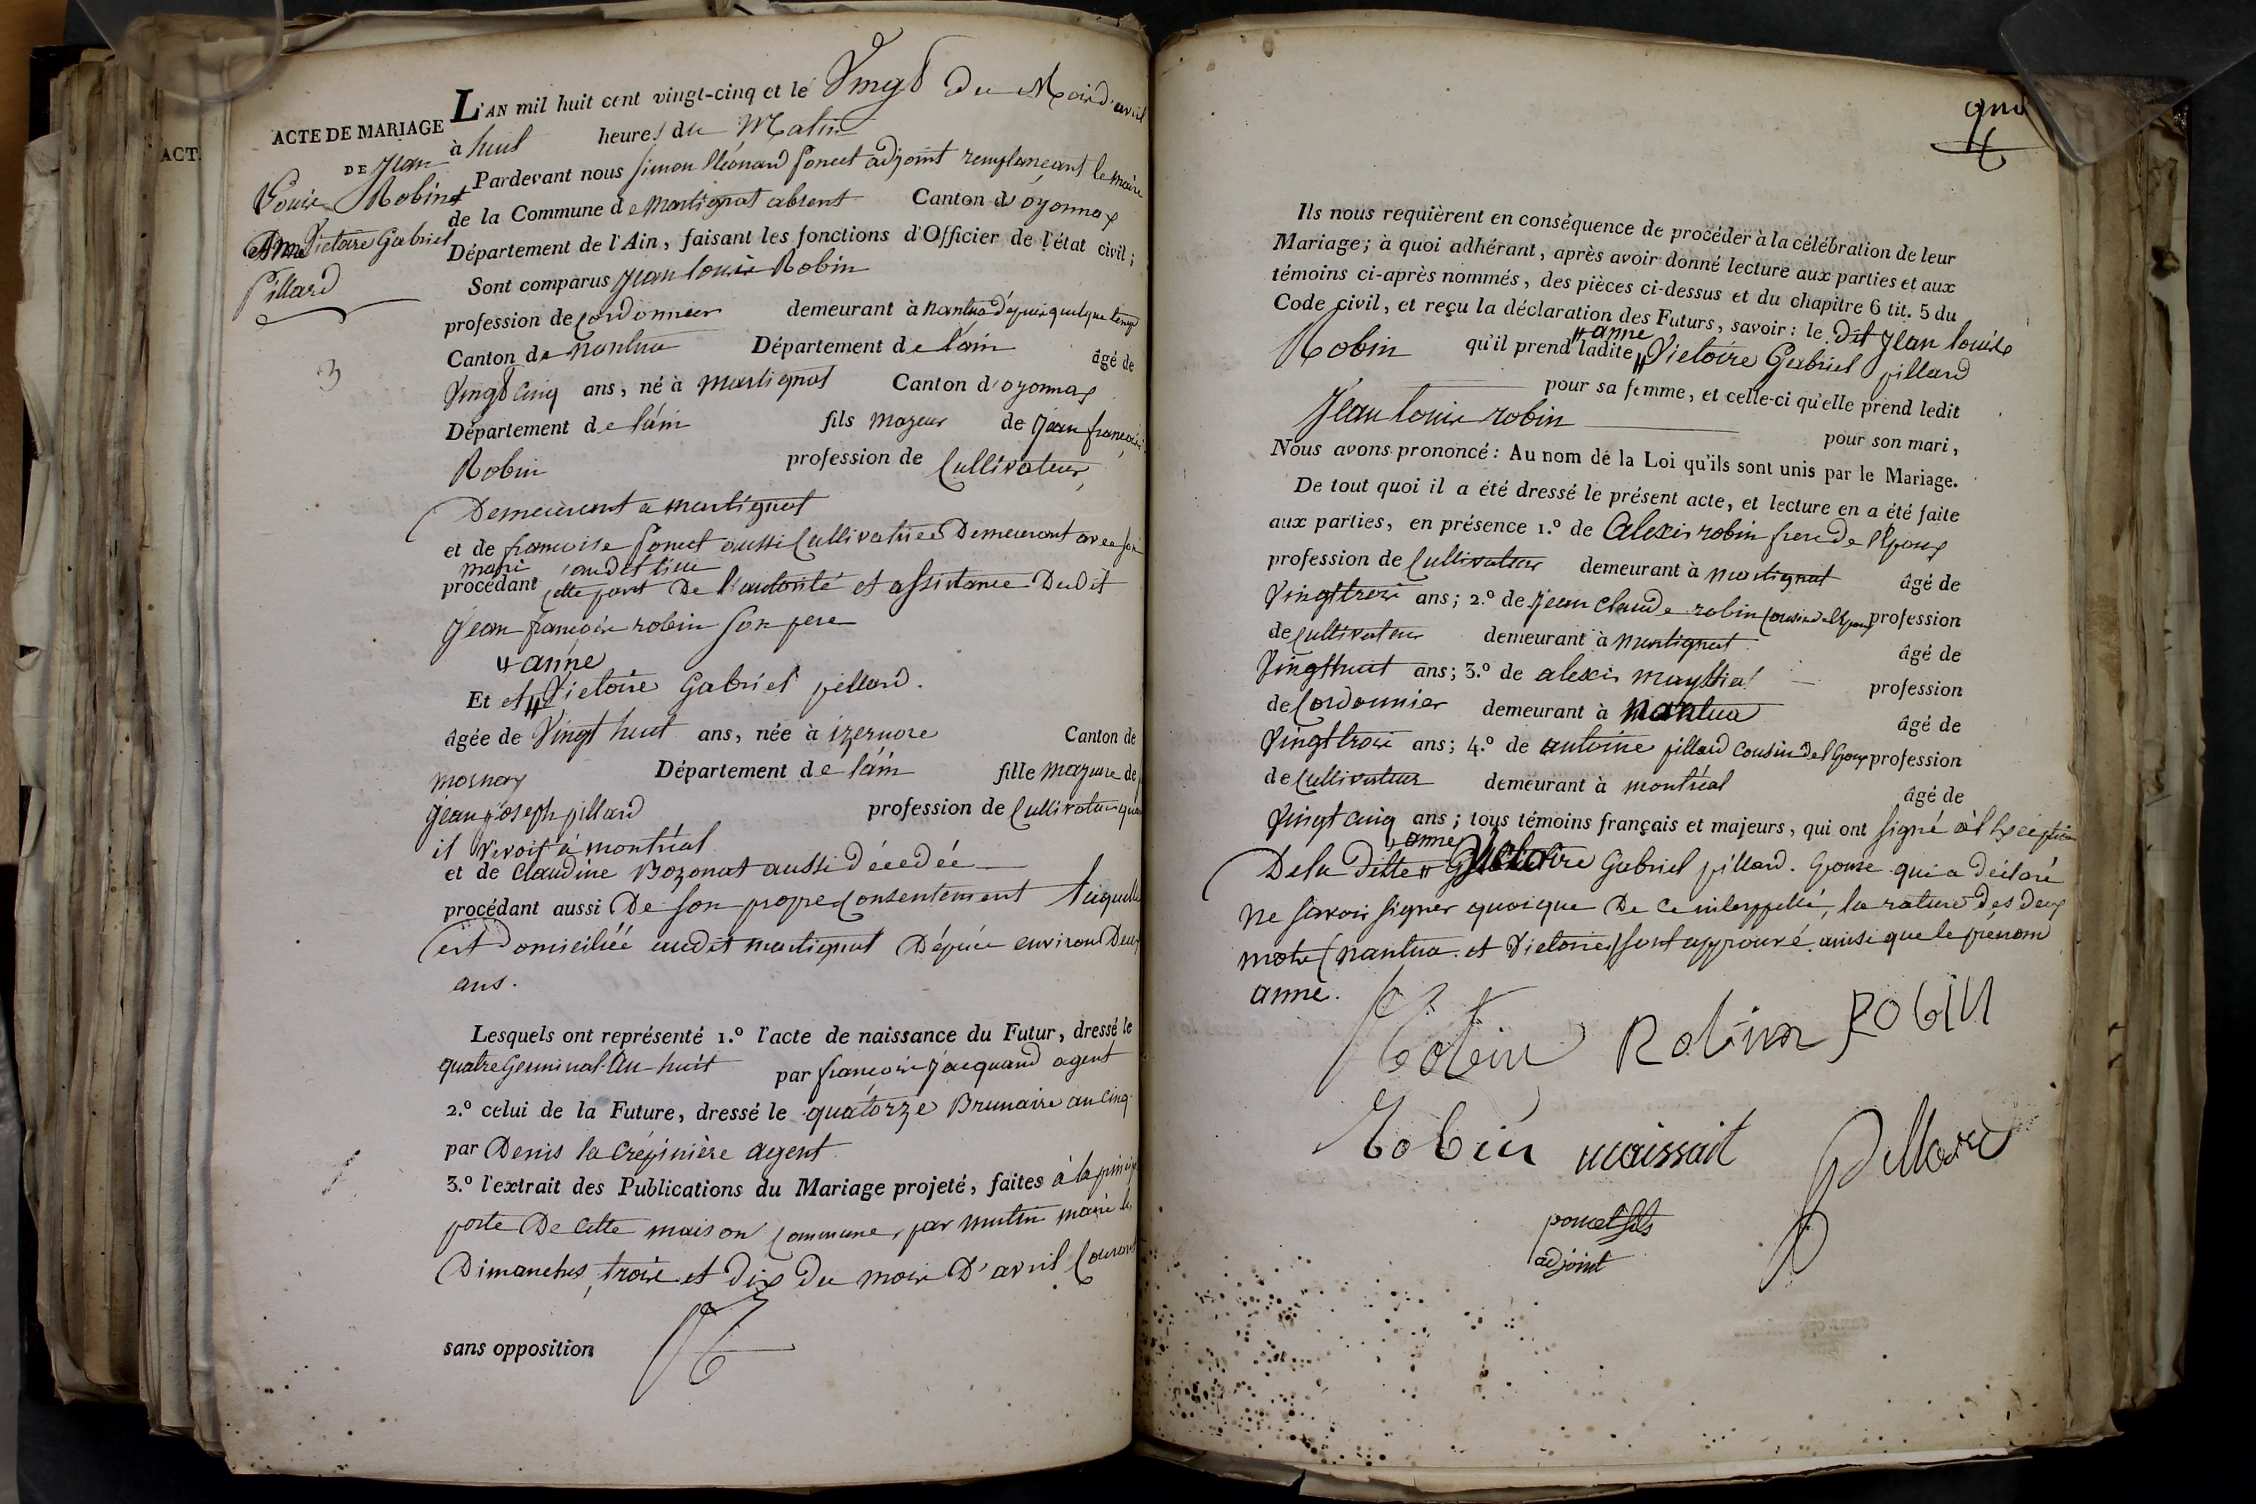 ACT.
ACTE DE MARIAGE
DE Jean
Louis Robin et
Anne Victoire Gabriel
Pillard
3
L'AN mil huit cent vingt-cinq et le Vingt du Mois d'avril
à huit heures du Matin
Pardevant nous Simon Léonard Poncet adjoint remplançant le maire
de la Commune de Martignat absent Canton d'oyonnax
Département de l'Ain, faisant les fonctions d'Officier de l'état civil;
Sont comparus Jean louis Robin
profession de Cordonnier demeurant à nantua dépuis quelque temps
Canton de nantua Département de l'ain âgé de
Vingt Cinq ans, né à Martignat Canton d'oyonnax
Département de l'ain fils majeur de Jean françois
Robin profession de Cultivateur,
Demeurant a martignat
et de francoise Poncet aussi Cultivatrice Demeurant avec son
mari audit lieu
procédant cette part De l'autorité et assistance Dudit
Jean françois robin son pere
anne
Et et Victoire Gabriel pillard.
âgée de Vingt huit ans, née à izernore Canton de
mornay Département de l'ain fille majeure de
Jean joseph pillard profession de Cultivateur quan
il vivoit à montréal
et de claudine Bozonat aussi décédée
procédant aussi De son propre Consentement laquelle
est Domiciliée audit martignat Dépuis environ Deux
ans.
Lesquels ont représenté 1.º l'acte de naissance du Futur, dressé le
quatre Germinal an huit par francois jacquand agent
2.º celui de la Future, dressé le quatorze Brumaire an cinq
par Denis la Crépinière agent
3.º l'extrait des Publications du Mariage projeté, faites à la princip
porte De cette maison Commune, par mutin maire les
Dimanches, trois et dix du mois D'avril Courant
sans opposition
Ils nous requièrent en conséquence de procéder à la célébration de leur
Mariage; à quoi adhérant, après avoir donné lecture aux parties et aux
témoins ci-après nommés, des pièces ci-dessus et du chapitre 6 tit. 5 du
Code civil, et reçu la déclaration des Futurs, savoir: le dit Jean louis
anne
Robin qu'il prend ladite Victoire Gabriel pillard
pour sa femme, et celle-ci qu'elle prend ledit
Jean louis robin pour son mari,
Nous avons prononcé: Au nom de la Loi qu'ils sont unis par le Mariage.
De tout quoi il a été dressé le présent acte, et lecture en a été faite
aux parties, en présence 1.º de Alexis robin frere de l'Epoux
profession de Cultivateur demeurant à Martignat âgé de
Vingt trois ans; 2.º de Jean claude robin Cousin de l'Epoux profession
de Cultivateur demeurant à Martignat âgé de
Vingt huit ans; 3.º de alexis profession
de Cordonnier demeurant à Nantua âgé de
Vingt trois ans; 4.º de antoine pillard cousin de l'Epouse profession
de Cultivateur demeurant à montréal âgé de
Vingt cinq ans; tous témoins français et majeurs, qui ont signé à l'Exception
anne
De la ditte Victoire Gabriel pillard. Epouse qui a déclaré
ne savoir signer quoique De ce interppellé, la rature Des deux
mots (nantua. et Victoire) sont approuvé ainsi que le prénom
anne.
Robin Robin ROBIN
Robin maissait Pillard
poncet fils
adjoint